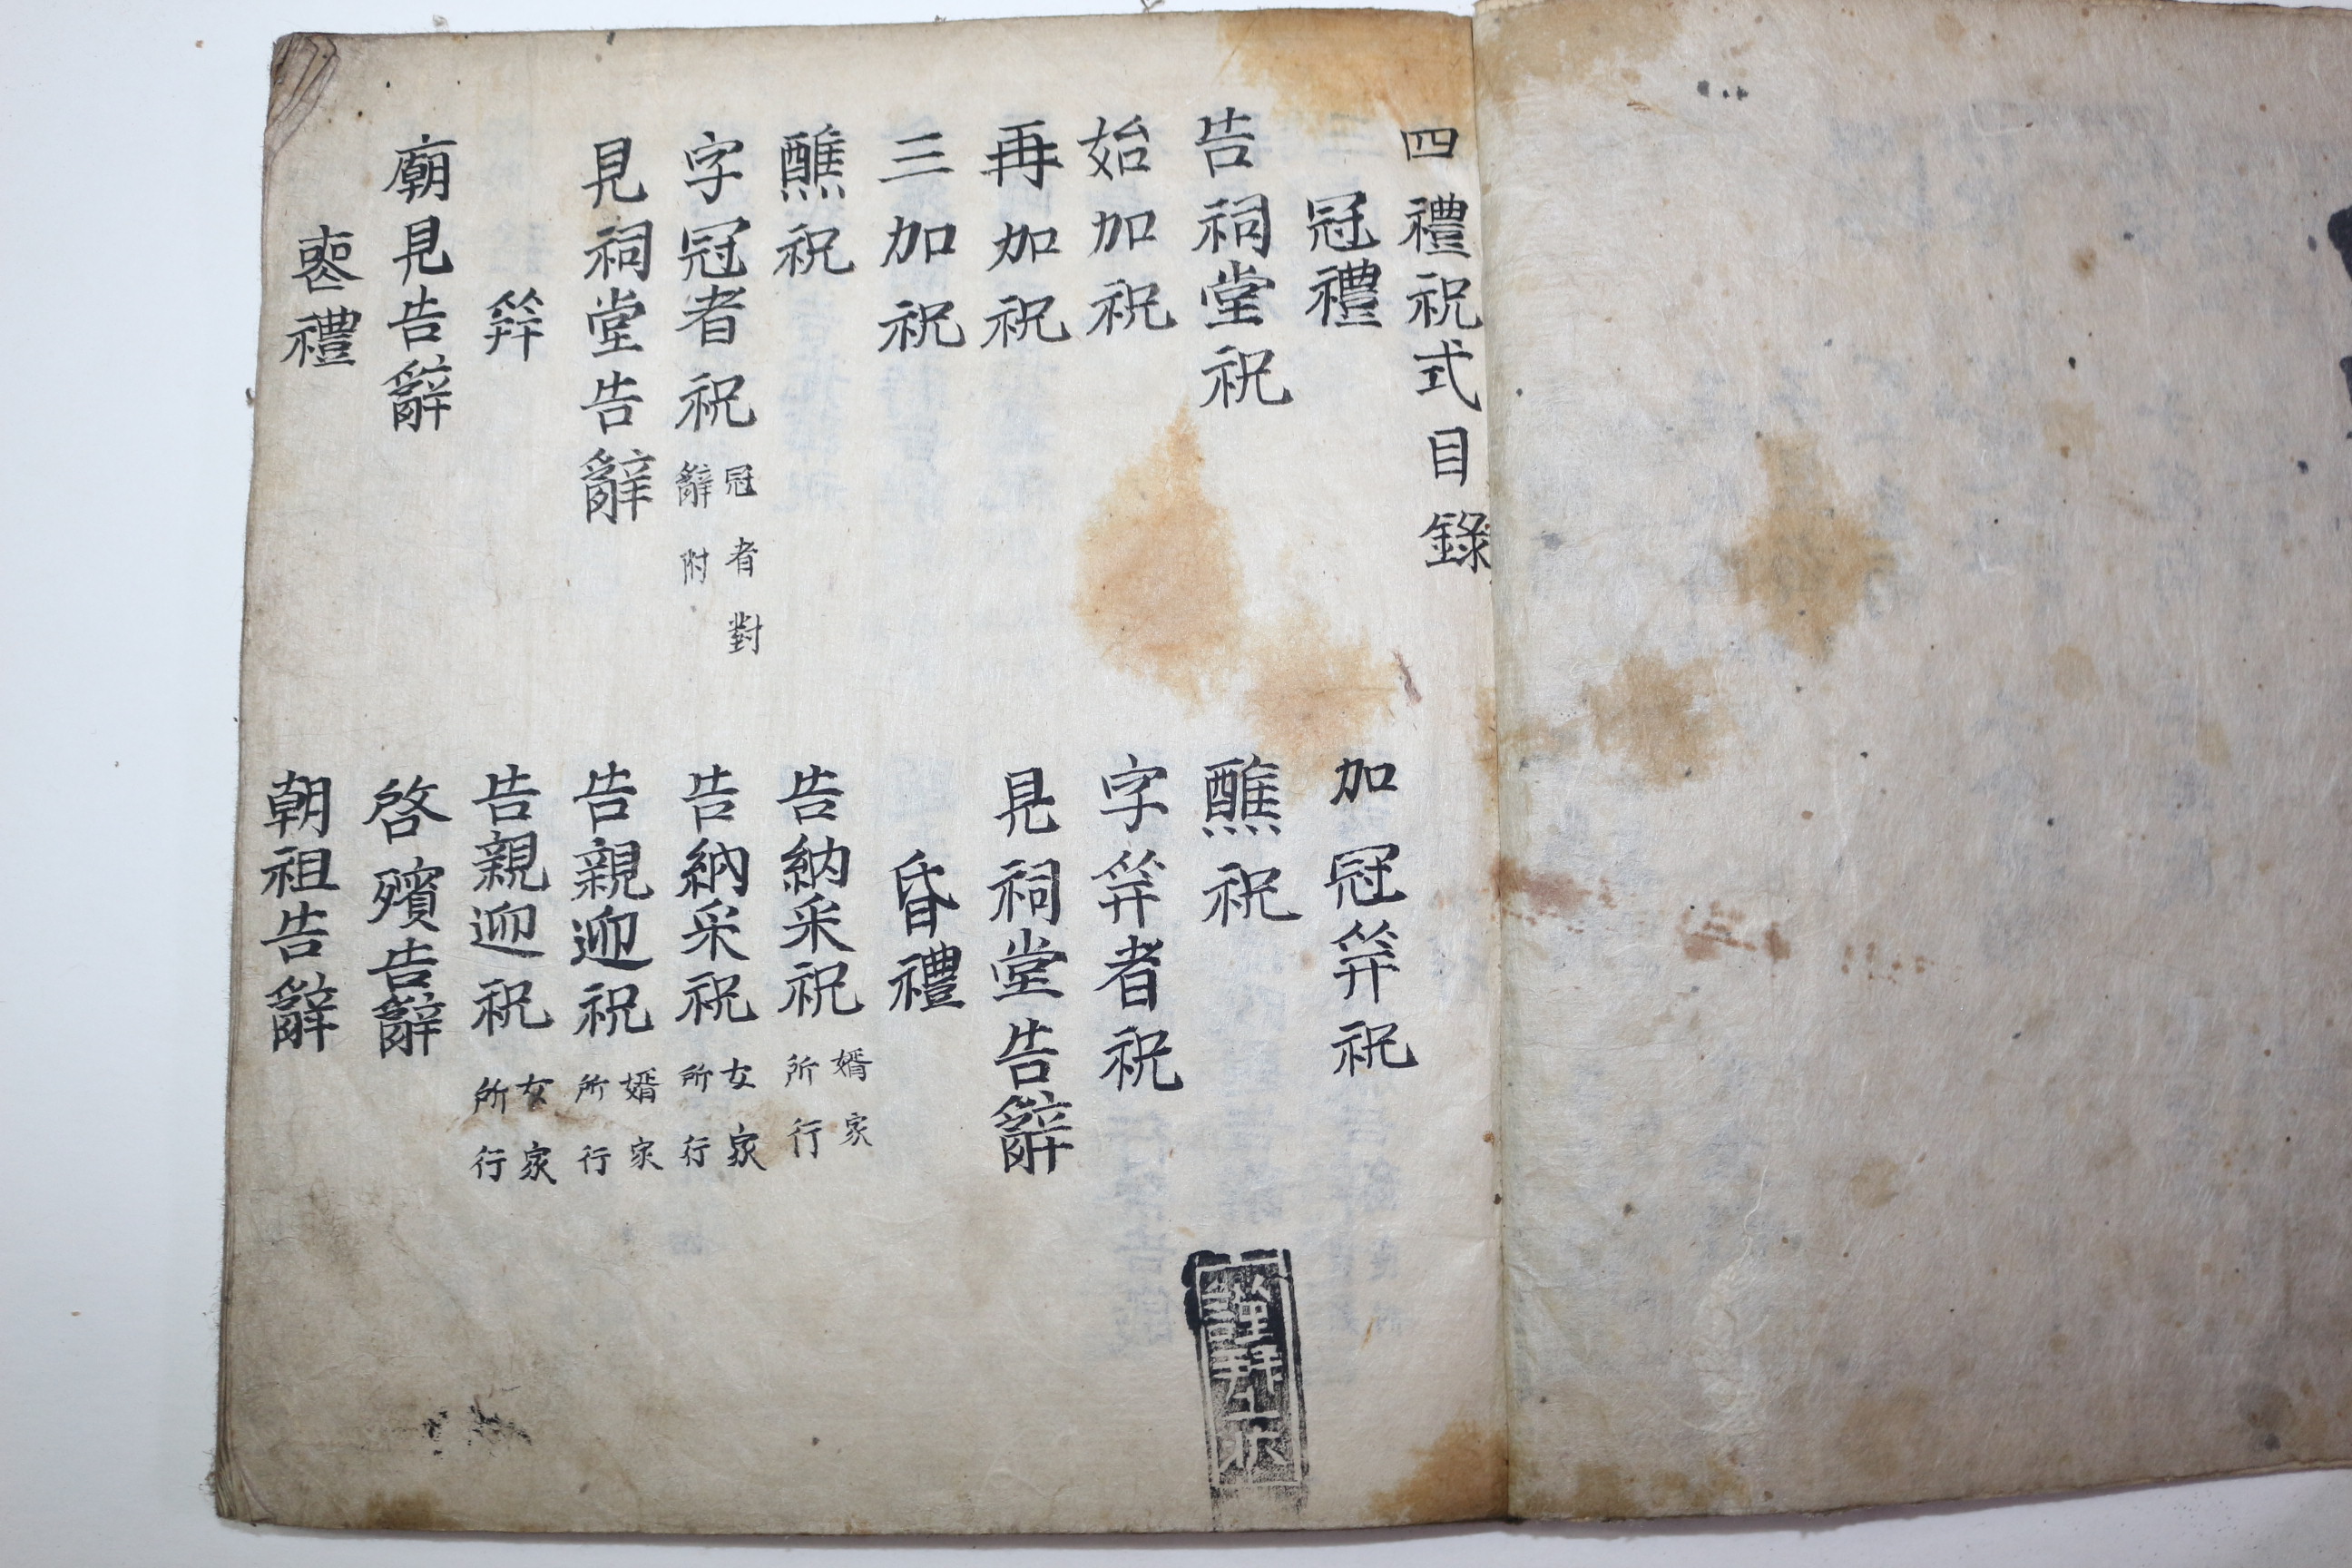 四禮祝式目錄
冠禮
告祠堂祝
始加祝
再加祝
三加祝
醮祝
字冠者祝 冠者對辭附
見祠堂告辭
笄
廟見告辭
喪禮
加冠笄祝
醮祝
字笄者祝
見祠堂告辭
昏禮
告納采祝 婿家所行
告納采祝 女家所行
告親迎祝 婿家所行
告親迎祝 女家所行
啓殯告辭
朝祖告辭